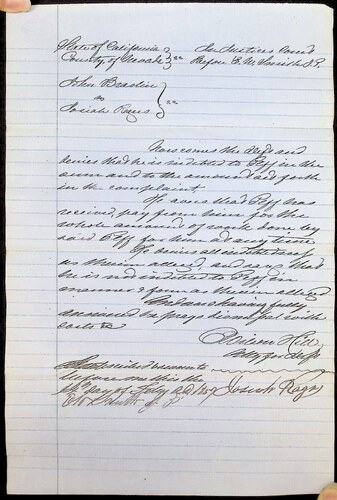 State of California } ss In Justices Court
County of Nevada } Before E. W. Smith J.P.
John Breslin
vs } ss
Josiah Rogers
Now comes the deft and
denies that he is indebted to Plff in the
sum and to the amount set forth
in the complaint.
It avers that Plff has
received pay from him for the
whole amount of work done by
said Plff for him at any time
He denies all indebtedness
as therein alleged, denies that
he is indebted to Plff in
manner & form as therein alleged
Wherefore having fully
answered he prays dismissal with
costs &c
Hill
Atty for deft
Subscribed & sworn to
before me this the
day of Feby A.D. 1859 Josiah
E W Smith J. P.